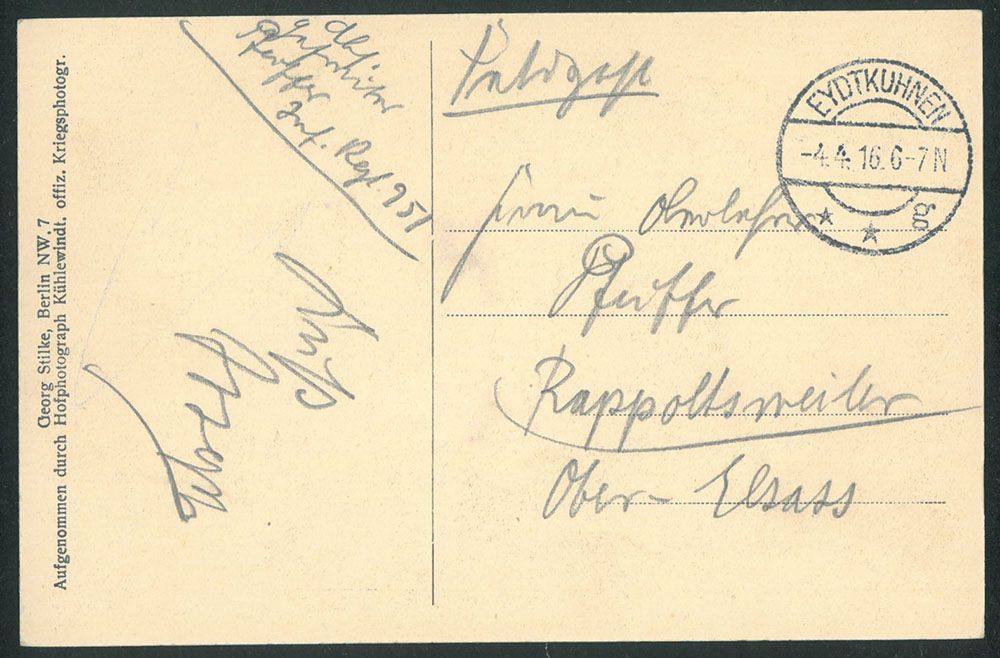 Georg Stilke, Berlin NW. 7
Aufgenommen durch Hofphotograph Kühlewindt. offiz. Kriegsphotogr.
Pfeiffer
Inf. Regt. 951
Feldpost
EYDTKUHNEN
-4.4.16.6-7N
* *
Frau Oberlehrer
Pfeiffer
Rappoltsweiler
Ober-Elsass